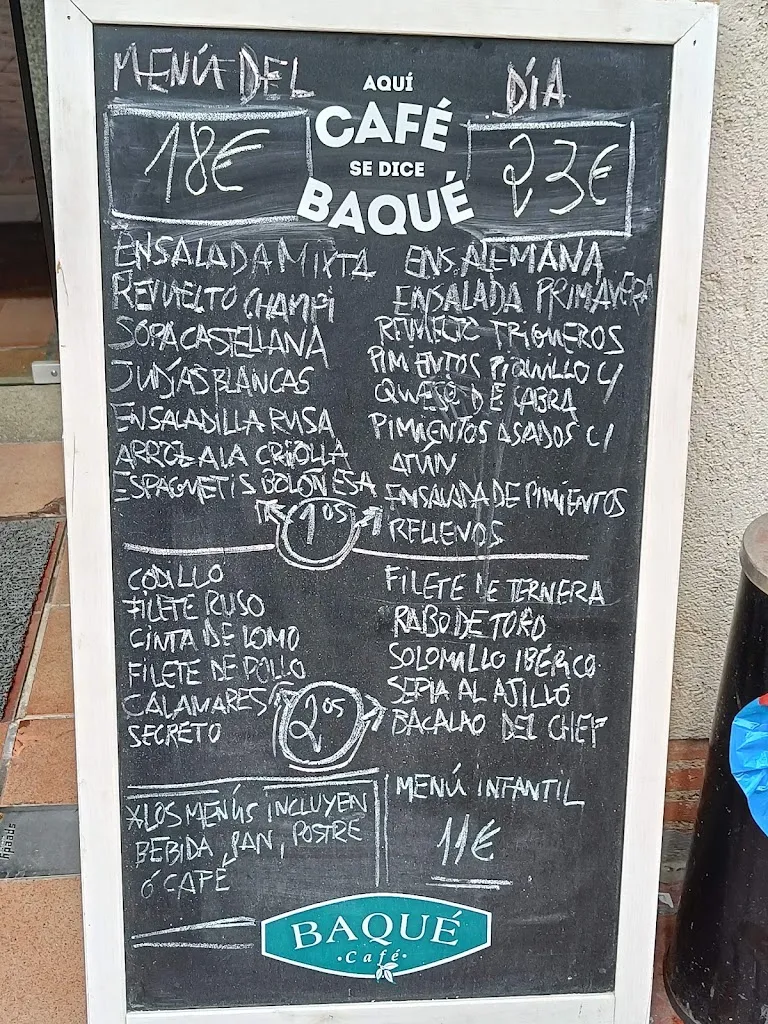 MENÚ DEL DÍA
AQUÍ
CAFÉ
SE DICE
BAQUÉ
18€
ENSALADA MIXTA
REVUELTO CHAMPI
SOPA CASTELLANA
JUDÍAS BLANCAS
ENSALADILLA RUSA
ARROZ A LA CRIOLLA
ESPAGUETIS BOLOÑESA
23€
ENS. ALEMANA
ENSALADA PRIMAVERA
REVUELTO TRIGUEROS
PIMIENTOS PIQUILLO C/
QUESO DE CABRA
PIMIENTOS ASADOS C/
ATÚN
ENSALADA DE PIMIENTOS
RELLENOS
1OS
CODILLO
FILETE RUSO
CINTA DE LOMO
FILETE DE POLLO
CALAMARES
SECRETO
FILETE DE TERNERA
RABO DE TORO
SOLOMILLO IBÉRICO
SEPIA AL AJILLO
BACALAO DEL CHEF
2OS
*LOS MENÚS INCLUYEN
BEBIDA, PAN, POSTRE
Ó CAFÉ
MENÚ INFANTIL
11€
BAQUÉ
·Café·
speedy